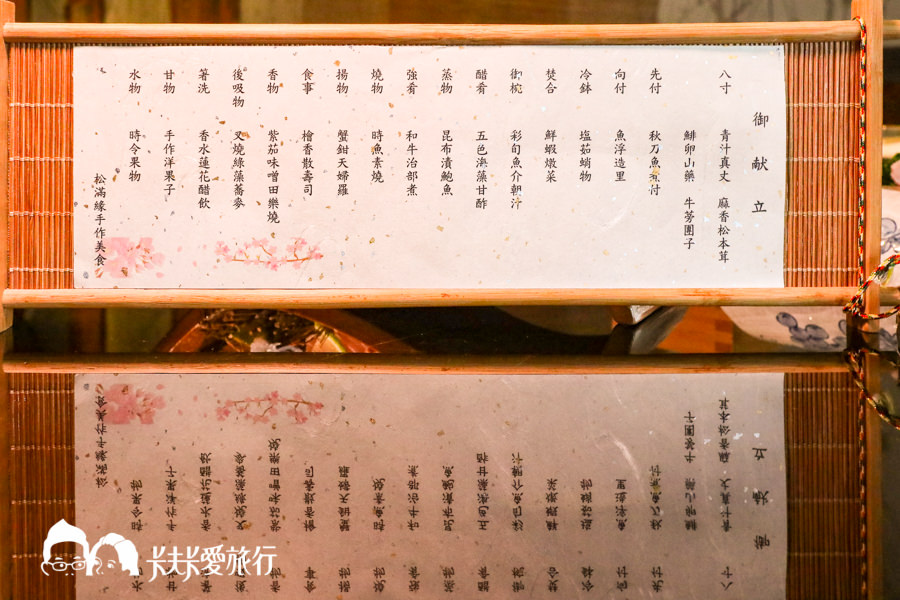 御献立
八寸 青汁真丈 麻香松本茸
鯡卵山藥 牛蒡團子
先付 秋刀魚煮付
向付 魚浮造里
冷鉢 塩茹蛸物
焚合 鮮蝦燉菜
御椀 彩旬魚介朝汁
醋肴 五色漁藻甘酢
蒸物 昆布漬鮑魚
強肴 和牛治部煮
燒物 時魚素燒
揚物 蟹鉗天婦羅
食事 檜香散壽司
香物 紫茄味噌田樂燒
後吸物 叉燒綠藻蕎麥
箸洗 香水蓮花醋飲
甘物 手作洋果子
水物 時令果物
松滿緣手作美食
卡夫卡愛旅行